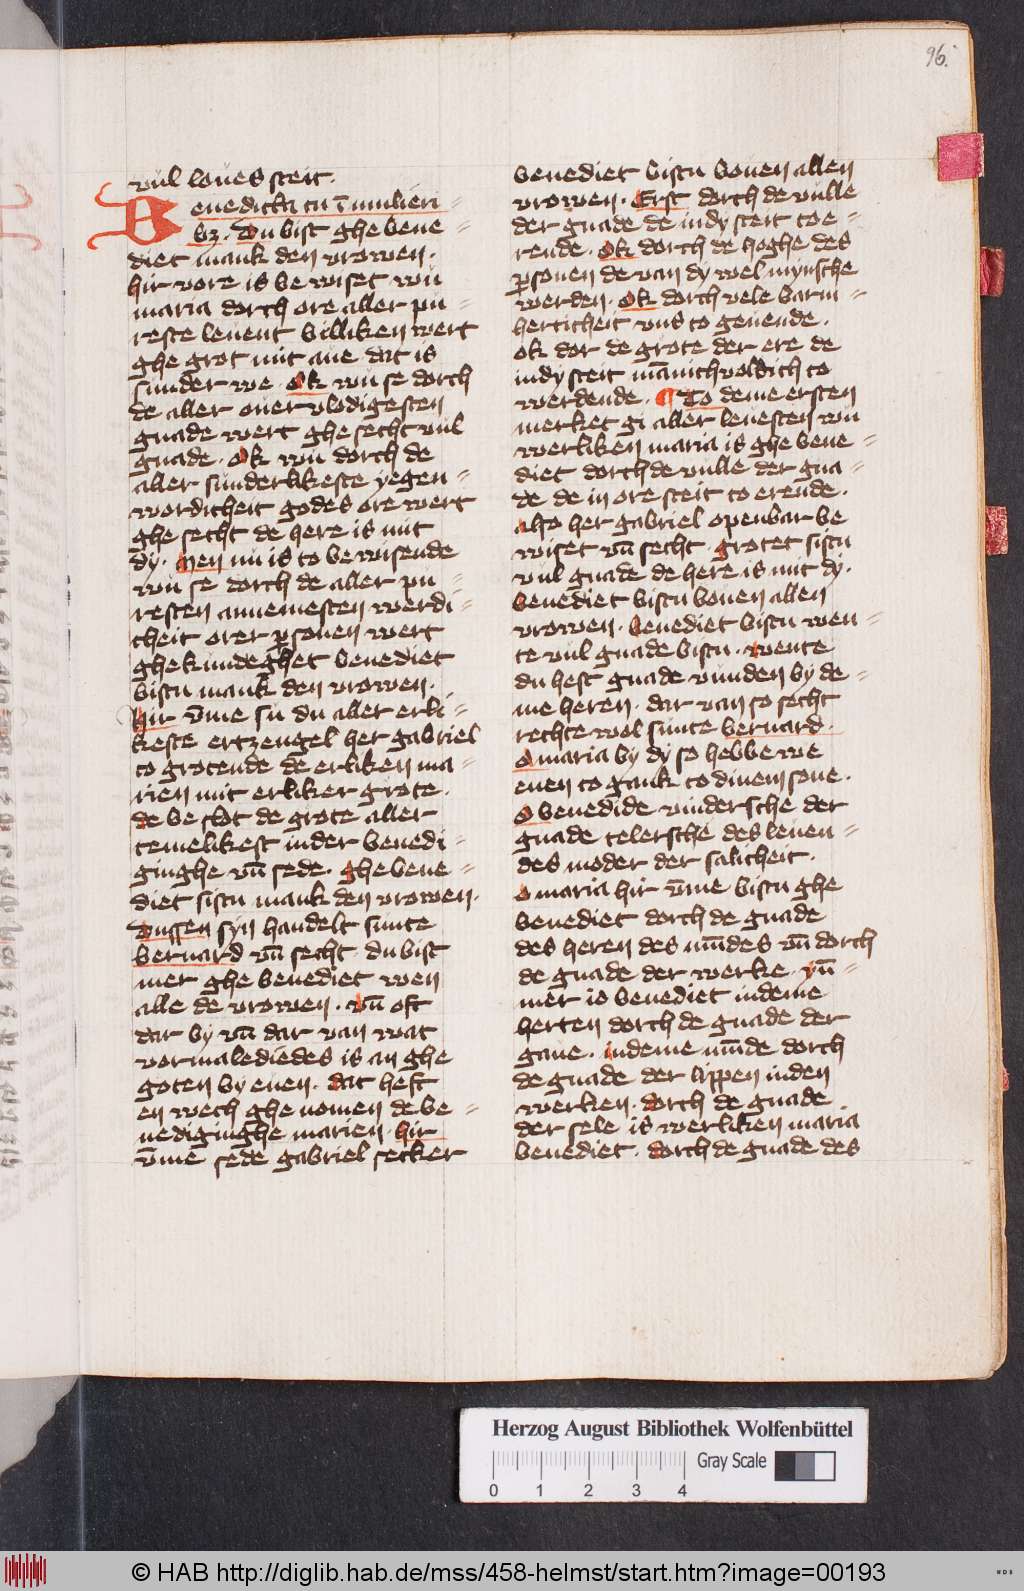 96.
vul loues steit.
Benedicta tu ī mulieri
bꝫ. Du bist ghe bene=
diet mank den vrowen.
hir vore is be wiset wu
maria dorch ore aller pu=
reste leuent billiken wert
ghe grot mit aue dat is
sunder we. Ok wu se dorch
de aller ouer vlodigesten
gnade wert ghe secht vul
gnade. Ok wu dorch de
aller sunderlikeste yegen=
wordicheit godes ore wert
ghe secht de here is mit
dy. Men nu is to be wisende
wu se dorch de aller pu=
resten annemesten werdi=
cheit orer ꝑsonen wert
ghekundeghet benediet
bistu mank den vrowen.
Hir v̄me su du aller erli=
keste ertzengel her gabriel
to grotende de erliken ma=
rien mit erliker grote.
de be slot de grote aller
temelikest in der benedi=
ginghe vn̄ sede. ghe bene=
diet sistu mank den vrowen.
Dussen syn handelt sunte
bernard vn̄ secht. du bist
mer ghe benediet wen
alle de vrowen. vn̄ oft
dar by vn̄ dar van wat
vormalediedes is an ghe
goten by euen. dat heft
en wech ghe nomen de be=
nediginghe marien. hir
v̄me sede gabriel secker
benediet bistu bouen allen
vrowen. Erst dorch de vulle
der gnade de in dy steit to e=
rende. Ok dorch de hoghe des
ꝑsonen de van dy wel mynsche
werden. Ok dorch vele barm=
herticheit vns to geuende.
ok dor de grote der ere de
in dy steit mānichvoldich to
werdende. ¶ To deme ersten
merket gi aller leuesten wu
werliken maria is ghe bene=
diet dorch de vulle der gna=
de de in ore steit to erende.
also her gabriel openbar be
wiset vn̄ secht. grotet sistu
vul gnade de here is mit dy.
benediet bistu bouen allen
vrowen. benediet bistu wen=
te vul gnade bistu. wente
du hest gnade vunden by de=
me heren. dar van so secht
rechte wol sunte bernard.
O maria by dy so hebbe we
enen to gank to dinem sone.
O benedide vindersche der
gnade telersche des leuen=
des moder der salicheit.
O maria hir v̄me bistu ghe
benediet dorch de gnade
des heren des mūdes vn̄ dorch
de gnade der werke. yn̄=
mer is benediet in deme
herten dorch de gnade der
gaue. in deme mūde dorch
de gnade der lippen in den
werken. dorch de gnade
der sele is werliken maria
benediet. dorch de gnade des
Herzog August Bibliothek Wolfenbüttel
Gray Scale
0 1 2 3 4
© HAB http://diglib.hab.de/mss/458-helmst/start.htm?image=00193